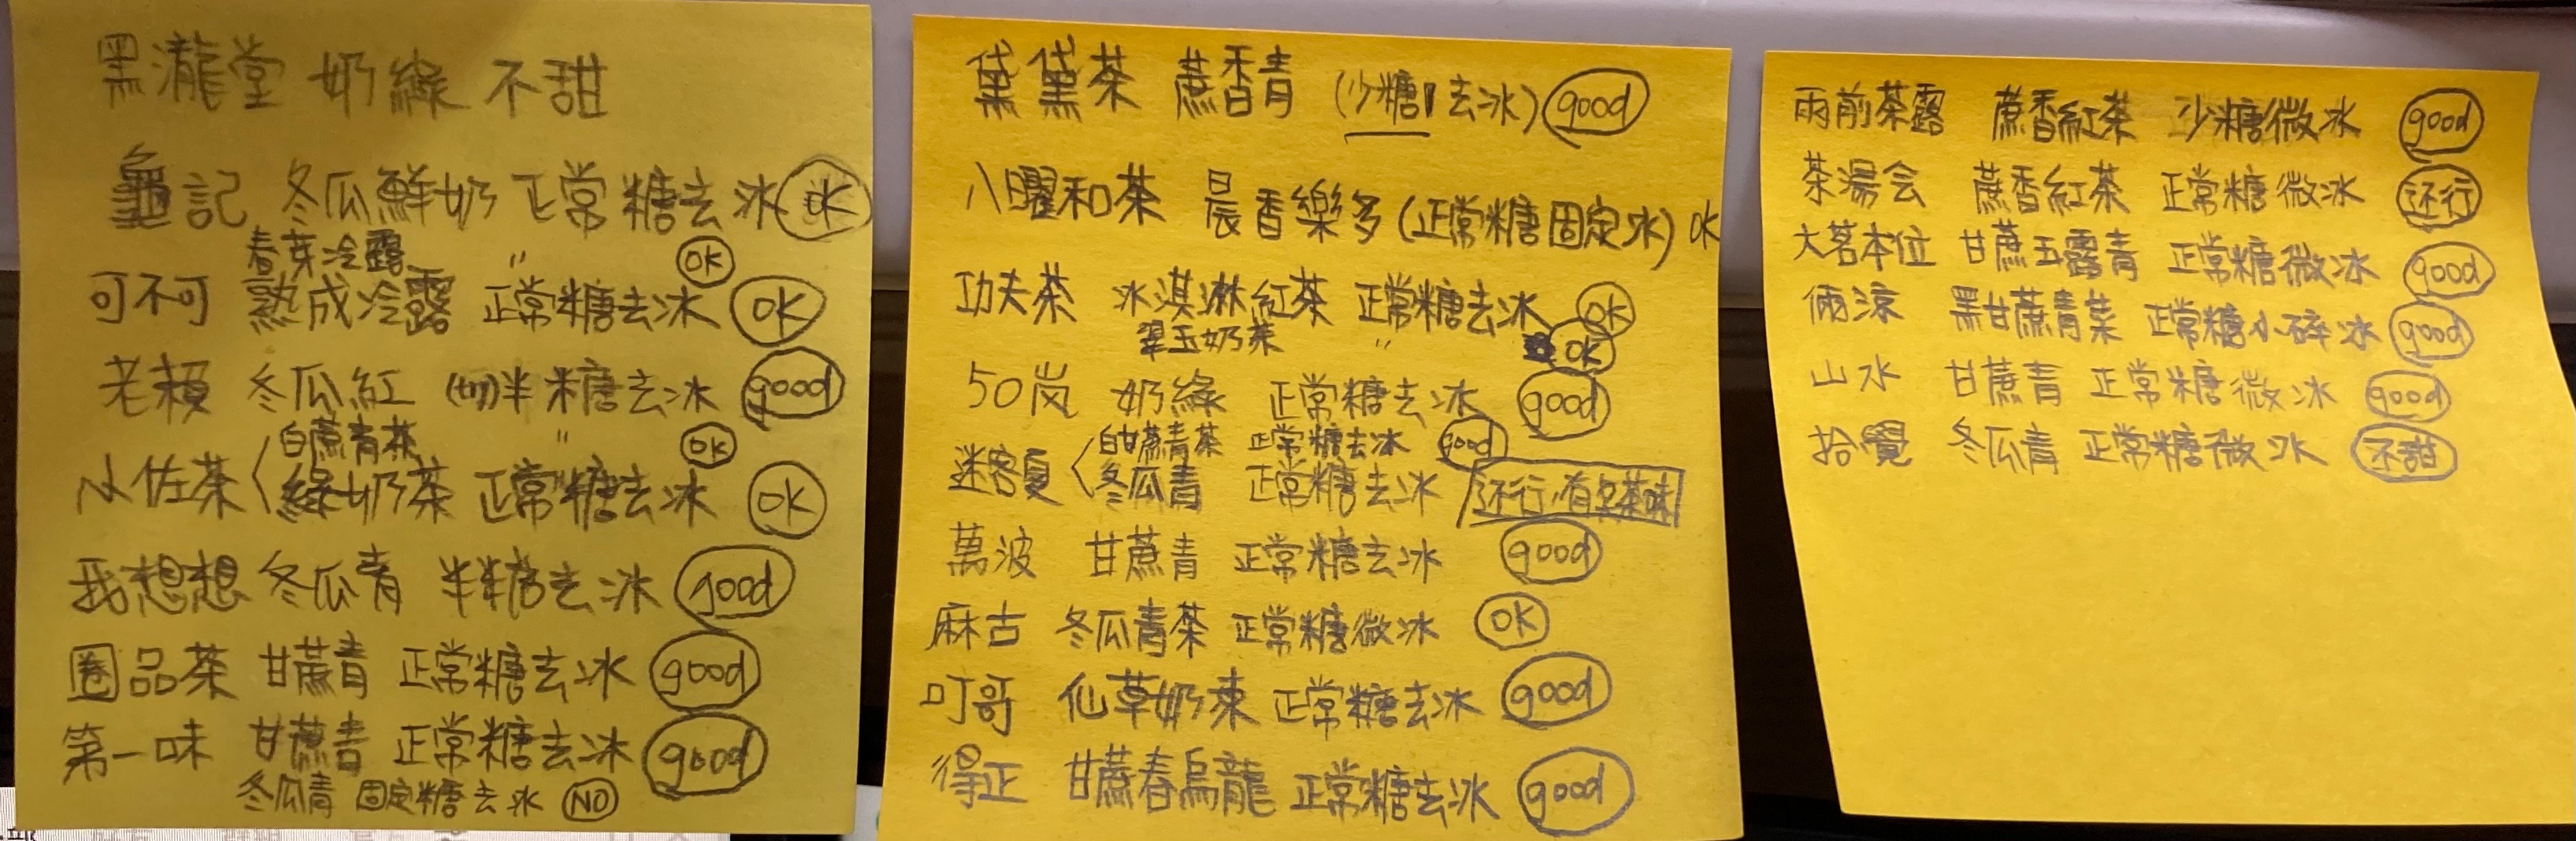 黑瀧堂 奶綠 不甜
龜記 冬瓜鮮奶 正常糖去冰 OK
春芽冷露 〃 OK
可不可 熟成冷露 正常糖去冰 OK
老賴 冬瓜紅 半糖去冰 good
白蔗青茶 〃 OK
小佐茶 綠奶茶 正常糖去冰 OK
我想想 冬瓜青 半糖去冰 good
圈品茶 甘蔗青 正常糖去冰 good
第一味 甘蔗青 正常糖去冰 good
冬瓜青 固定糖去冰 NO
黛黛茶 蔗香青 (少糖 去冰) good
八曜和茶 晨香樂多 (正常糖固定冰) OK
功夫茶 冰淇淋紅茶 正常糖去冰 OK
翠玉奶茶 〃 OK
50岚 奶綠 正常糖去冰 good
白甘蔗青茶 正常糖去冰 good
迷客夏 冬瓜青 正常糖去冰 还行,有茶味
萬波 甘蔗青 正常糖去冰 good
麻古 冬瓜青茶 正常糖微冰 OK
叮哥 仙草奶凍 正常糖去冰 good
得正 甘蔗春烏龍 正常糖去冰 good
雨前茶露 蔗香紅茶 少糖微冰 good
茶湯会 蔗香紅茶 正常糖微冰 还行
大茗本位 甘蔗玉露青 正常糖微冰 good
倆涼 黑甘蔗青茶 正常糖小碎冰 good
山水 甘蔗青 正常糖微冰 good
拾覺 冬瓜青 正常糖微冰 不甜